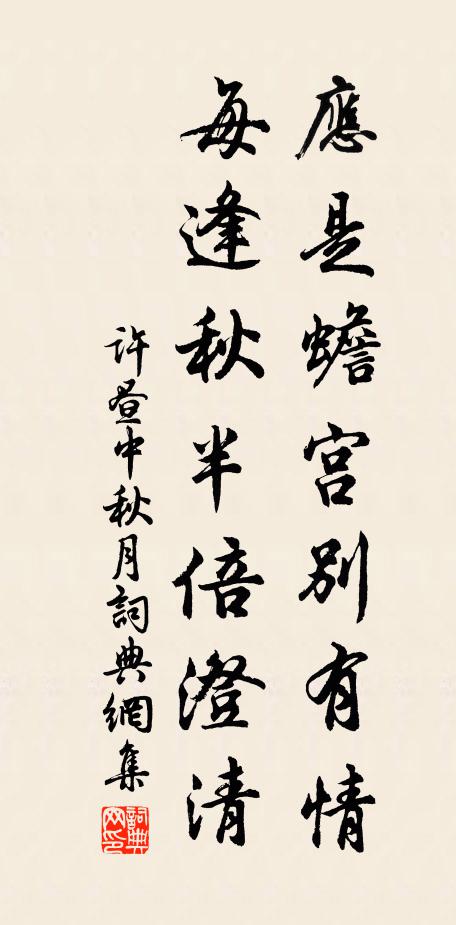 應是蟾宮別有情
每逢秋半倍澄清
許晝中秋月詞典網集
詞典网印